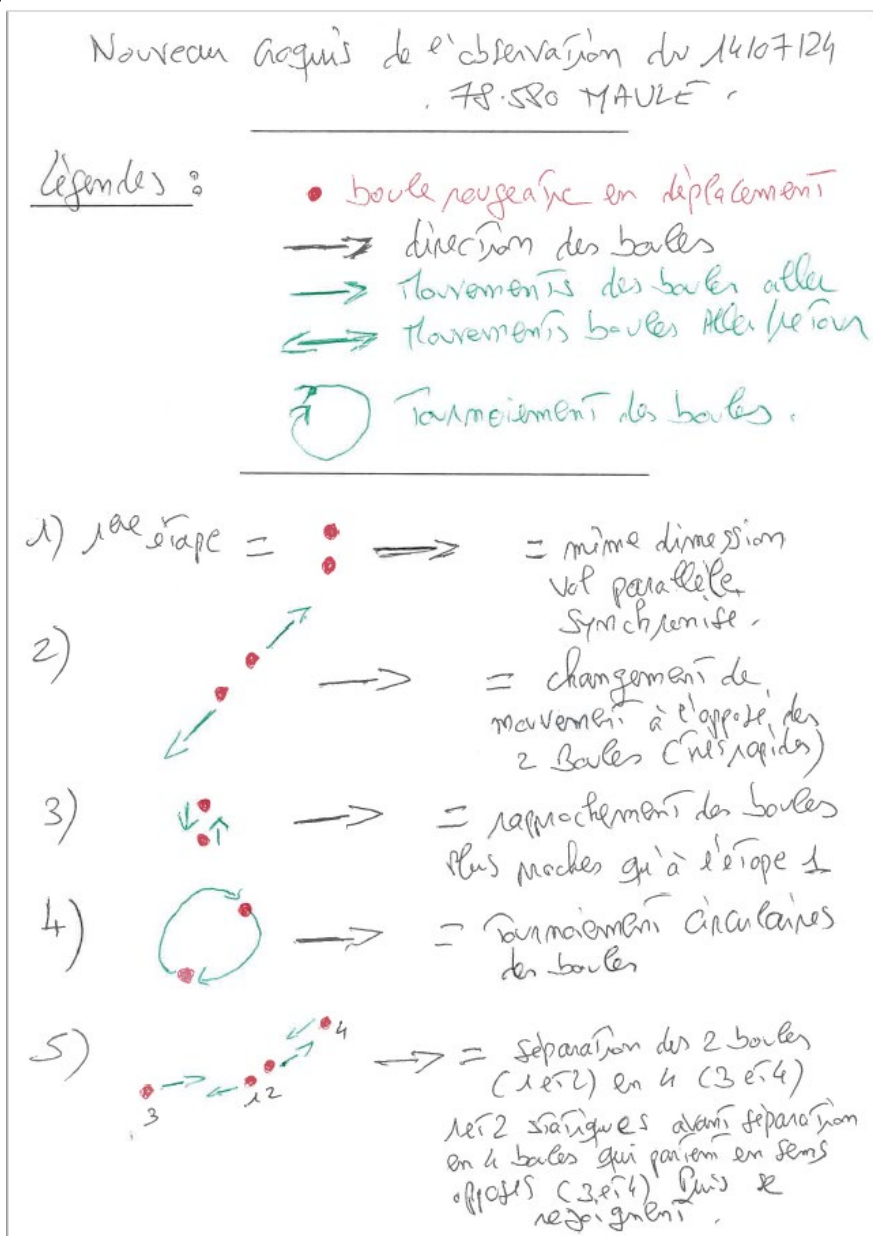 Nouveau croquis de l'observation du 14/07/24
. 78.580 MAULE.
Légendes :
boule rougeatre en déplacement
direction des boules
Mouvements des boules aller
Mouvements boules Aller/retour
Tournoiement des boules.
1) 1ere étape = = même dimession
vol parallèle
synchronise.
2) = changement de
mouvement à l'opposé des
2 Boules (très rapides)
3) = rapprochement des boules
plus proches qu'à l'étape 1
4) = Tournoiement circulaires
des boules
5) 3 1 2 4 = séparation des 2 boules
(1 et 2) en 4 (3 et 4)
1 et 2 statiques avant séparation
en 4 boules qui partent en sens
opposés (3 et 4) Puis se
rejoignent.